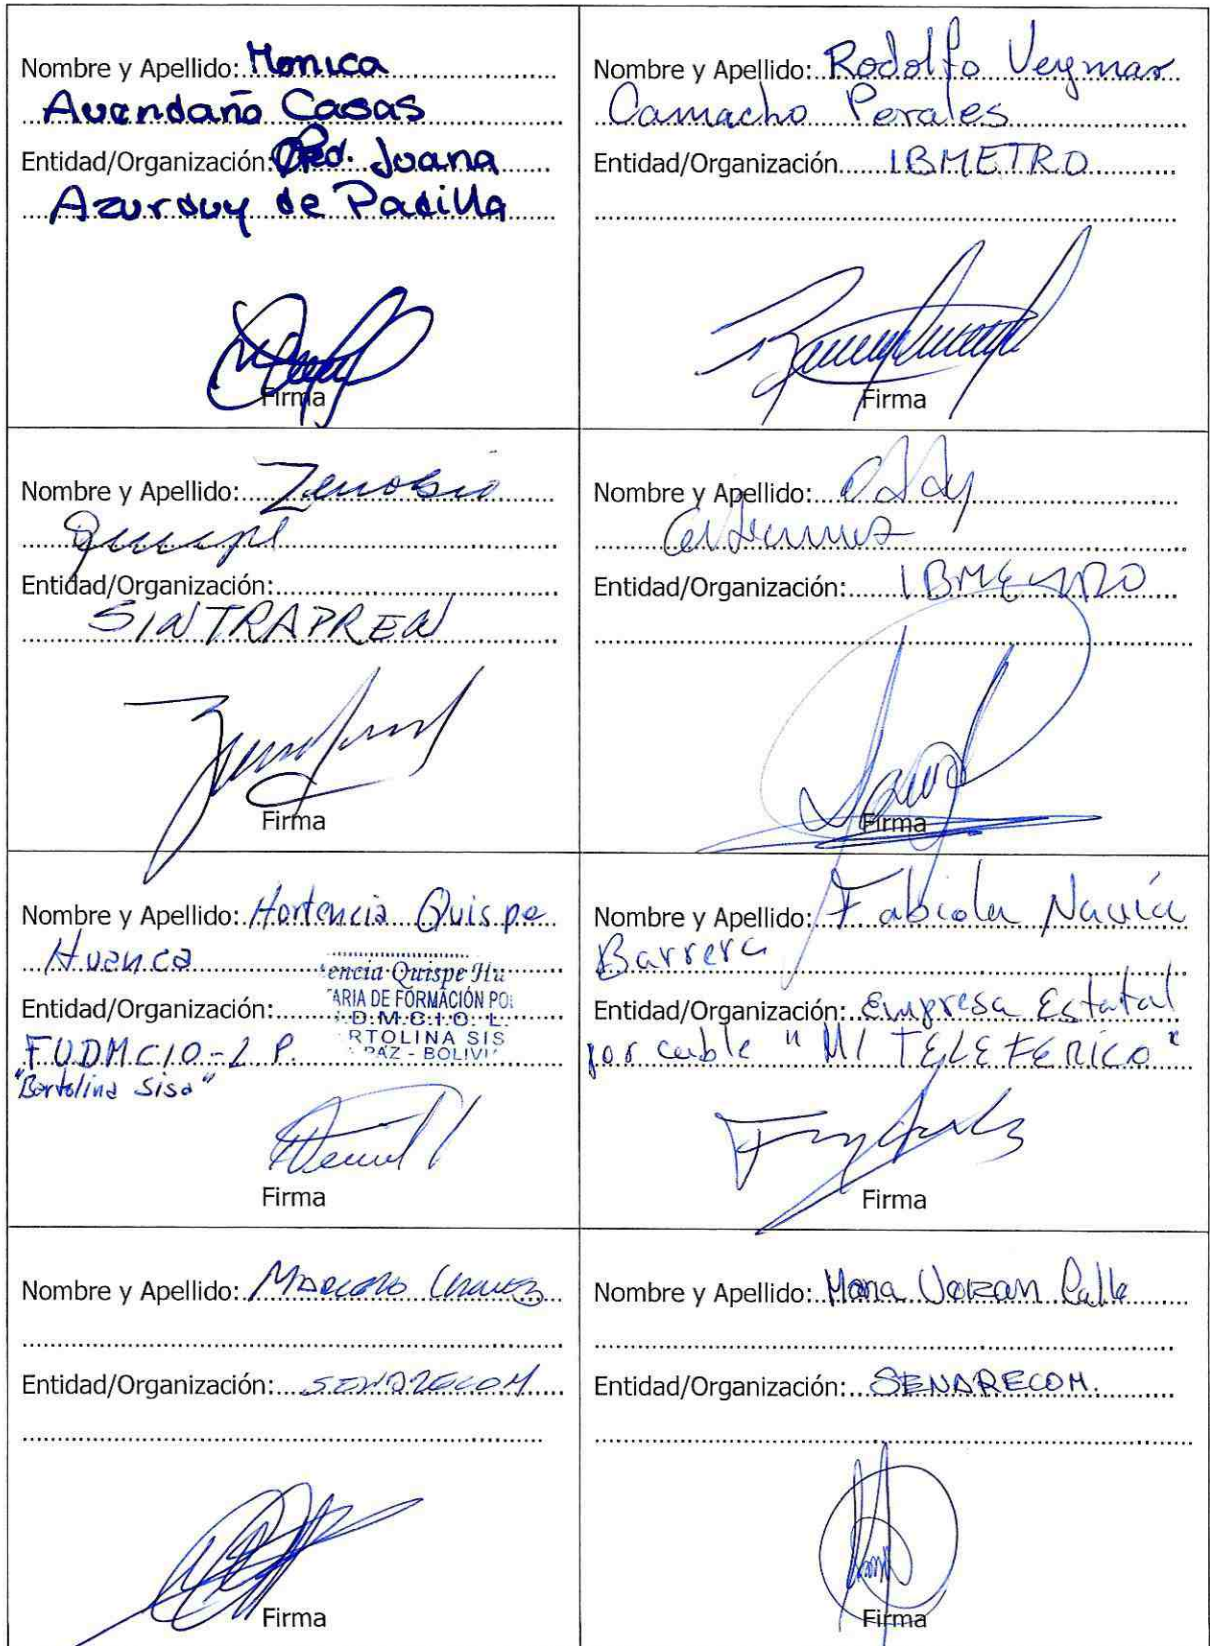 Nombre y Apellido: Monica
Avendaño Casas
Entidad/Organización: Red. Juana
Azurduy de Padilla
Firma
Nombre y Apellido: Rodolfo Veymar
Camacho Perales
Entidad/Organización IBMETRO
Firma
Nombre y Apellido: Zenobio
Quispe
Entidad/Organización:
SINTRAPREN
Firma
Nombre y Apellido:
Entidad/Organización: IBMETRO
Firma
Nombre y Apellido: Hortencia Quispe
Huanca
encia Quispe Hu
ARIA DE FORMACIÓN PO
Entidad/Organización:
D.M.C.I.O. L.
RTOLINA SIS
PAZ - BOLIVI
FUDMCIO-L P.
"Bartolina Sisa"
Firma
Nombre y Apellido: Fabiola Navía
Barrera
Entidad/Organización: Empresa Estatal
por cable "MI TELEFERICO"
Firma
Nombre y Apellido: Marcelo Chavez
Entidad/Organización: SENARECOM
Firma
Nombre y Apellido:
Entidad/Organización: SENARECOM.
Firma